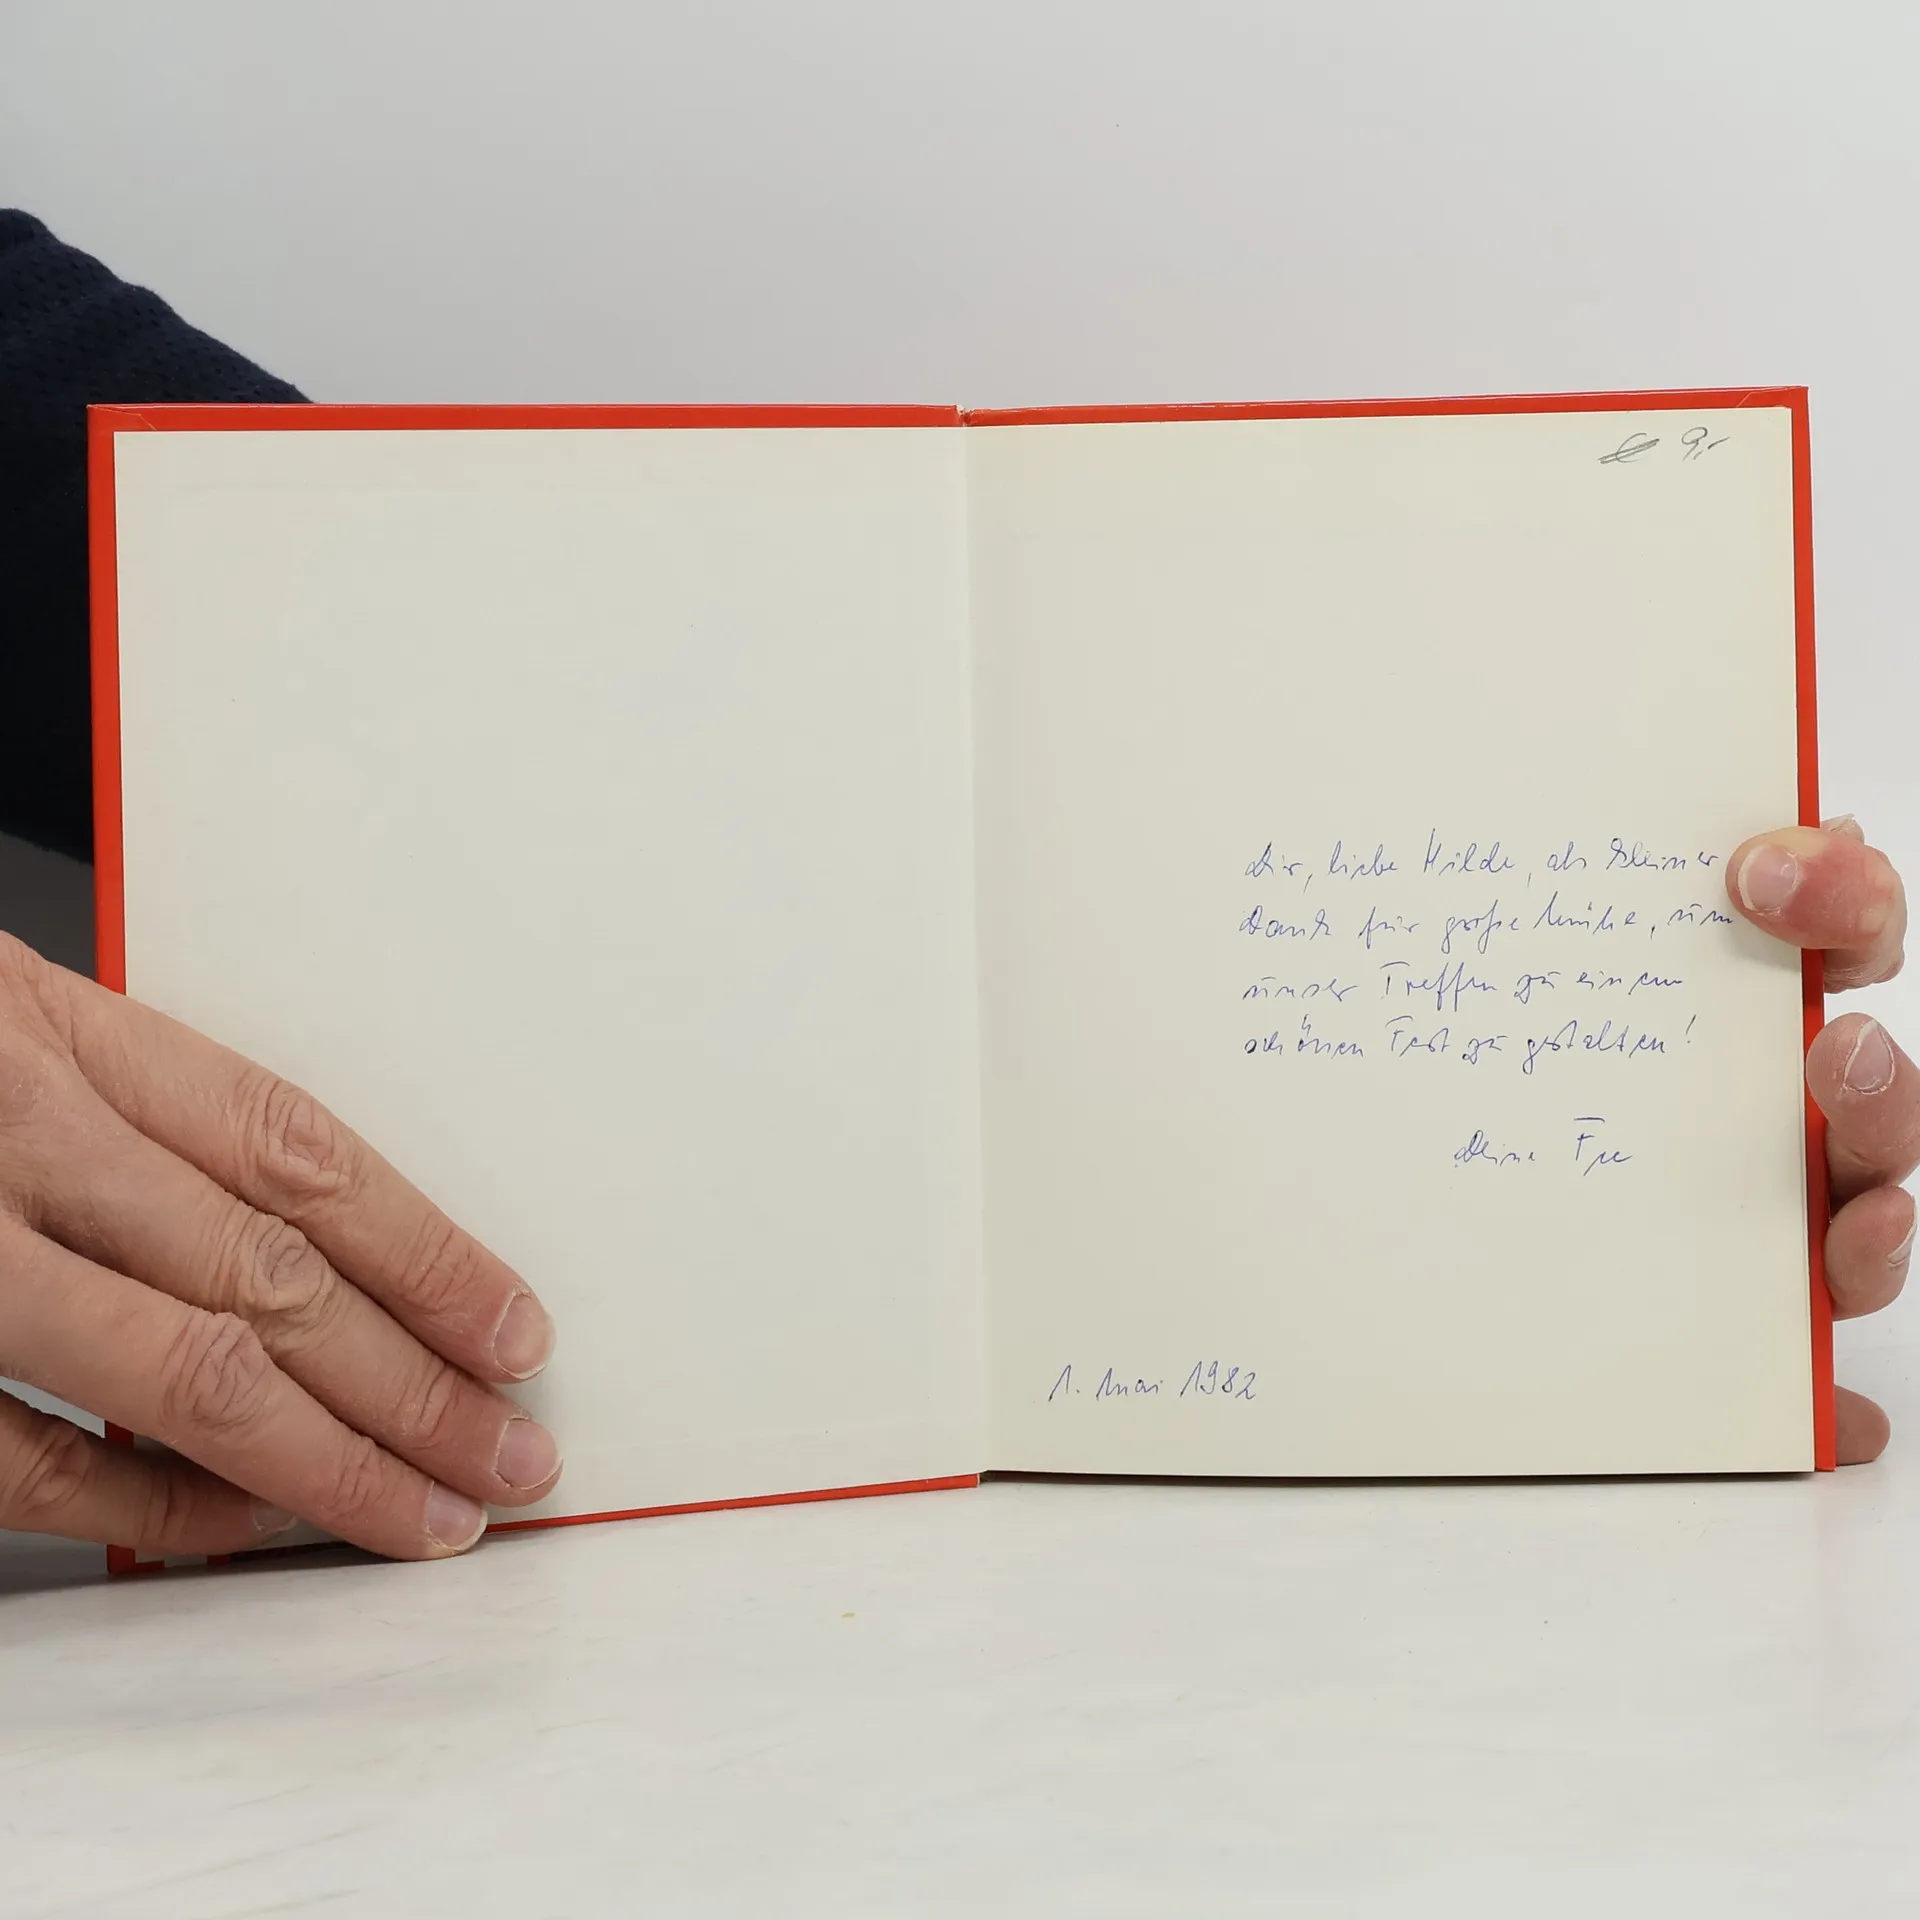 9,-
Dir, liebe Hilde, als kleiner
Dank für große Mühe, um
unser Treffen zu einem
schönen Fest zu gestalten!
Deine
1. Mai 1982